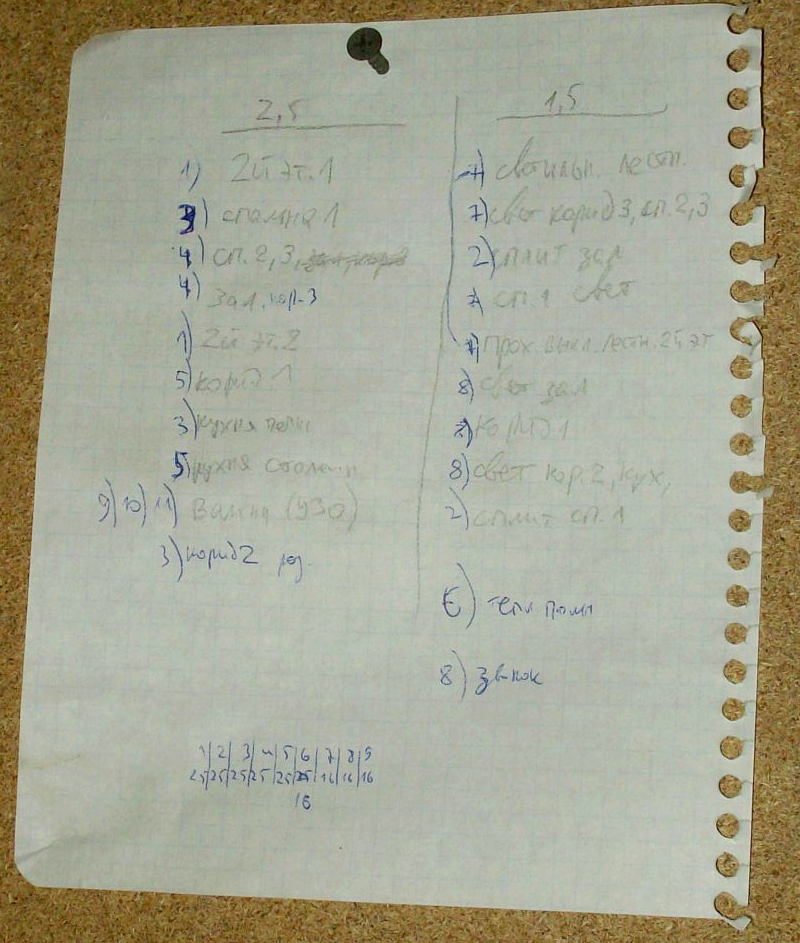 2,5
1) 2й эт.1
3) спальня 1
4) сп.2,3,
4) Зал, кор-3
1) 2й эт.2
5) корид 1
3) кухня печь
5) кухня столешн.
9) 10) 11) Ванна (УЗО)
3) корид2 роз.
1,5
7) светильн. лестн.
7) свет корид3, сп.2,3
2) сплит зал
7) сп.1 свет
7) прох. выкл. лестн. 2й эт
8) свет зал
7) корид1
8) свет кор.2, кух,
2) сплит сп.1
6) тепл полы
8) звонок
1|2|3|4|5|6|7|8|9
25|25|25|25|25|25|16|16|16
16